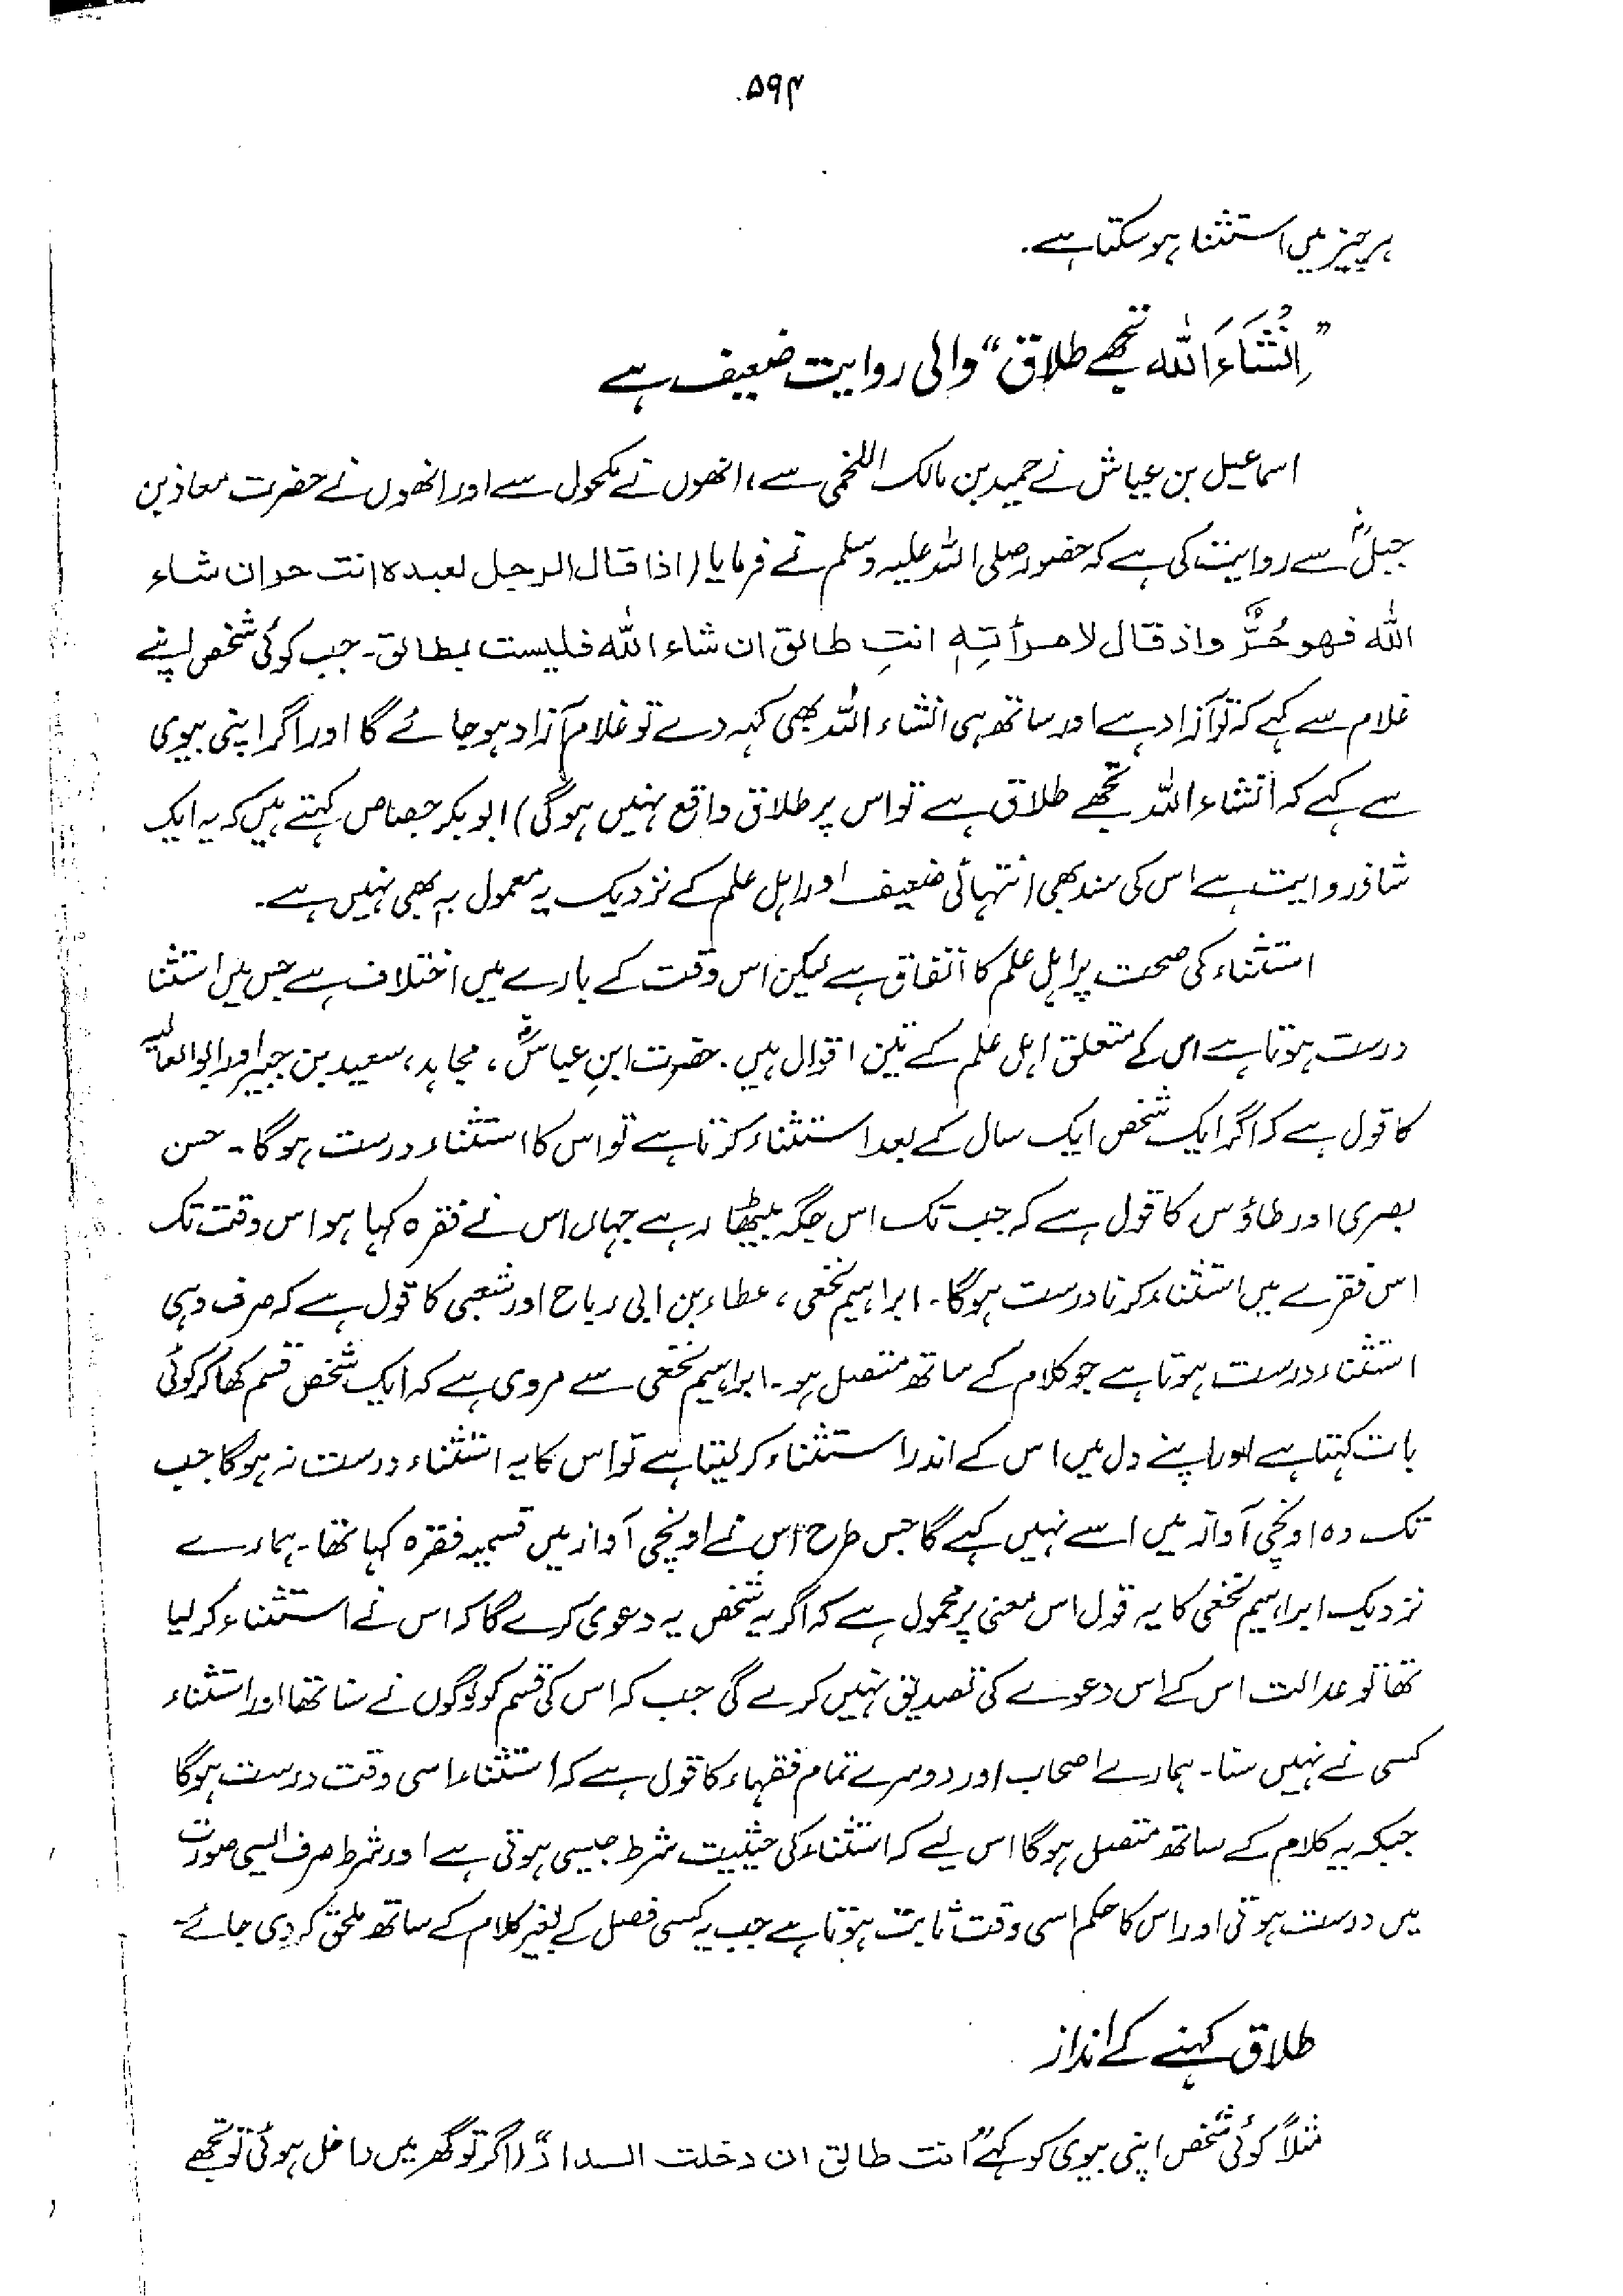 ۵۹۴
ہر چیز میں استثنا ہو سکتا ہے۔
”اِنْشَاءَ اللہ تجھے طلاق“ والی روایت ضعیف ہے
اسماعیل بن عیاش نے حمید بن مالک اللخمی سے، انھوں نے مکحول سے اور انھوں نے حضرت معاذ بن
جبلؓ سے روایت کی ہے کہ حضور صلی اللہ علیہ وسلم نے فرمایا (اذا قال الرجل لعبدہ انت حر ان شاء
اللہ فھو حُرٌّ واذ قال لامرأتِہٖ انتِ طالق ان شاء اللہ فلیست بطالق۔ جب کوئی شخص اپنے
غلام سے کہے کہ تو آزاد ہے اور ساتھ ہی انشاء اللہ بھی کہہ دے تو غلام آزاد ہو جائے گا اور اگر اپنی بیوی
سے کہے کہ انشاء اللہ تجھے طلاق ہے تو اس پر طلاق واقع نہیں ہوگی) ابوبکر جصاص کہتے ہیں کہ یہ ایک
شاذ روایت ہے اس کی سند بھی انتہائی ضعیف اور اہل علم کے نزدیک یہ معمول بہ بھی نہیں ہے۔
استثناء کی صحت پر اہل علم کا اتفاق ہے لیکن اس وقت کے بارے میں اختلاف ہے جس میں استثنا
درست ہوتا ہے اس کے متعلق اہل علم کے تین اقوال ہیں۔ حضرت ابنِ عباسؓ، مجاہد، سعید بن جبیر اور ابوالعالیہ
کا قول ہے کہ اگر ایک شخص ایک سال کے بعد استثناء کرتا ہے تو اس کا استثناء درست ہوگا۔ حسن
بصری اور طاؤس کا قول ہے کہ جب تک اس جگہ بیٹھا رہے جہاں اس نے فقرہ کہا ہو اس وقت تک
اس فقرے میں استثناء کرنا درست ہوگا۔ ابراہیم نخعی، عطاء بن ابی رباح اور شعبی کا قول ہے کہ صرف وہی
استثناء درست ہوتا ہے جو کلام کے ساتھ متصل ہو۔ ابراہیم نخعی سے مروی ہے کہ ایک شخص قسم کھا کر کوئی
بات کہتا ہے اور اپنے دل میں اس کے اندر استثناء کر لیتا ہے تو اس کا یہ استثناء درست نہ ہوگا جب
تک وہ اونچی آواز میں اسے نہیں کہے گا جس طرح اس نے اونچی آواز میں قسمیہ فقرہ کہا تھا۔ ہمارے
نزدیک ابراہیم نخعی کا یہ قول اس معنی پر محمول ہے کہ اگر یہ شخص یہ دعوی کرے گا کہ اس نے استثناء کر لیا
تھا تو عدالت اس کے اس دعوے کی تصدیق نہیں کرے گی جب کہ اس کی قسم کو لوگوں نے سنا تھا اور استثناء
کسی نے نہیں سنا۔ ہمارے اصحاب اور دوسرے تمام فقہاء کا قول ہے کہ استثناء اسی وقت درست ہوگا
جبکہ یہ کلام کے ساتھ متصل ہوگا اس لیے کہ استثناء کی حیثیت شرط جیسی ہوتی ہے اور شرط صرف ایسی صورت
میں درست ہوتی اور اس کا حکم اسی وقت ثابت ہوتا ہے جب یہ کسی فصل کے بغیر کلام کے ساتھ ملحق کر دی جائے۔
طلاق کہنے کے انداز
مثلاً کوئی شخص اپنی بیوی کو کہے ”انت طالق ان دخلت الدار“ (اگر تو گھر میں داخل ہوئی تو تجھے